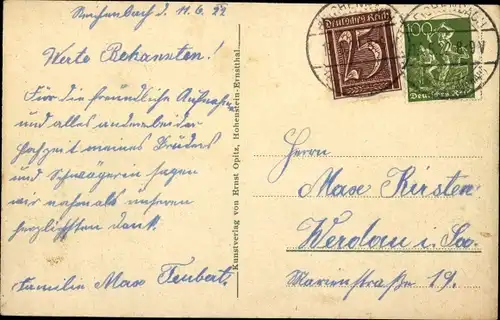 Reichenbach d. 11.6.22
Werte Bekannten!
Für die freundliche Aufnahme
und alles andere bei der
Hochzeit meines Bruders
und Schwägerin sagen
wir nochmals unseren
herzlichsten Dank.
Familie Max
Kunstverlag von Ernst Opitz, Hohenstein-Ernstthal.
Deutsches Reich
25
100
Deutsches Reich
Herrn
Max Kirsten
Werdau i. Sa.
Marienstraße 19.